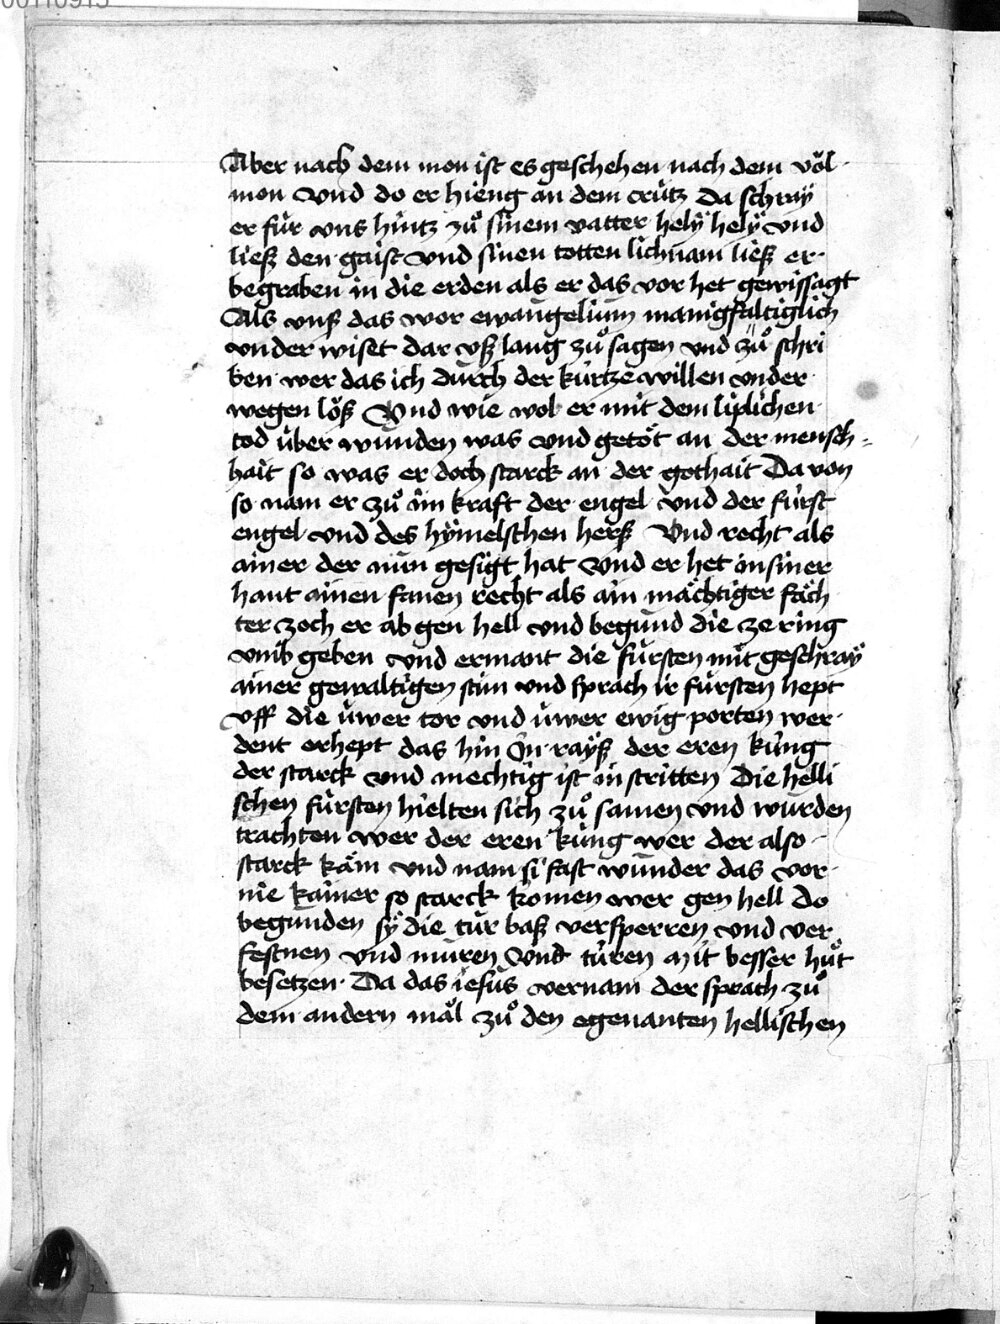 00110915
Aber nach dem mon ist es geschehen nach dem vol
mon Vnd do er hieng an dem crútz Da schray
er fúr vns hintz zuͦ sinem vatter hely hely vnd
ließ den gaist vnd sinen totten lichnam ließ er
begraben in die erden als er das vor het gewissagt
Als vnß das wor ewangelium manigfaltiglich
vnder wiset dar vß lang zuͦ sagen vnd zuͦ schri
ben wer das ich durch der kúrtze willen vnder
wegen löß Vnd wie wol er mit dem liplichen
tod úber wunden was vnd getöt an der mensch=
hait so was er doch starck an der gothait Da von
so nam er zuͦ im kraft der engel vnd der fúrst
engel vnd des hymelschen herß Vnd recht als
ainer der nun gesigt hat Vnd er het in siner
hant ainen fanen recht als ain mächtiger fäch
ter zoch er ab gen hell vnd begund die ze ring
vmb geben vnd ermant die fúrsten mit geschray
ainer gewaltigen stim vnd sprach ir fúrsten hept
vff die úwer tor vnd úwer ewig porten wer
dent erhept das hin In rayß der eren kúng
der starck vnd mechtig ist in stritten Die helli
schen fúrsten hielten sich zuͦ samen vnd wurden
trachten wer der eren kúng wer der also
starck käm vnd nam si fast wunder das vor
nie kainer so starck komen wer gen hell do
begunden sy die túr baß versperren vnd ver
festnen vnd muren Vnd túren mit besser huͦt
besetzen Da das iesus vernam der sprach zuͦ
dem andern mäl zuͦ den egenanten hellischen